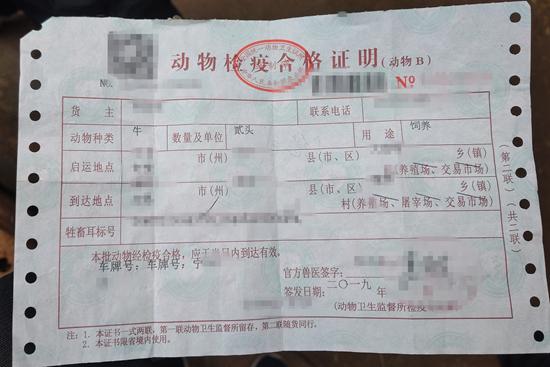 动物检疫合格证明(动物B)
No.
No
货 主 联系电话
动物种类 牛 数量及单位 贰头 用 途 饲养
启运地点 市(州) 县(市、区) 乡(镇)
(养殖场、交易市场)
到达地点 市(州) 县(市、区) 乡(镇)
村(养殖场、屠宰场、交易市场)
牲畜耳标号
本批动物经检疫合格,应于当日内到达有效。
车牌号:车牌号:宁
官方兽医签字:
签发日期:二〇一九 年
(动物卫生监督所检疫
注:1. 本证书一式两联,第一联动物卫生监督所留存,第二联随货同行。
2. 本证书限省境内使用。
(第二联)
(共二联)